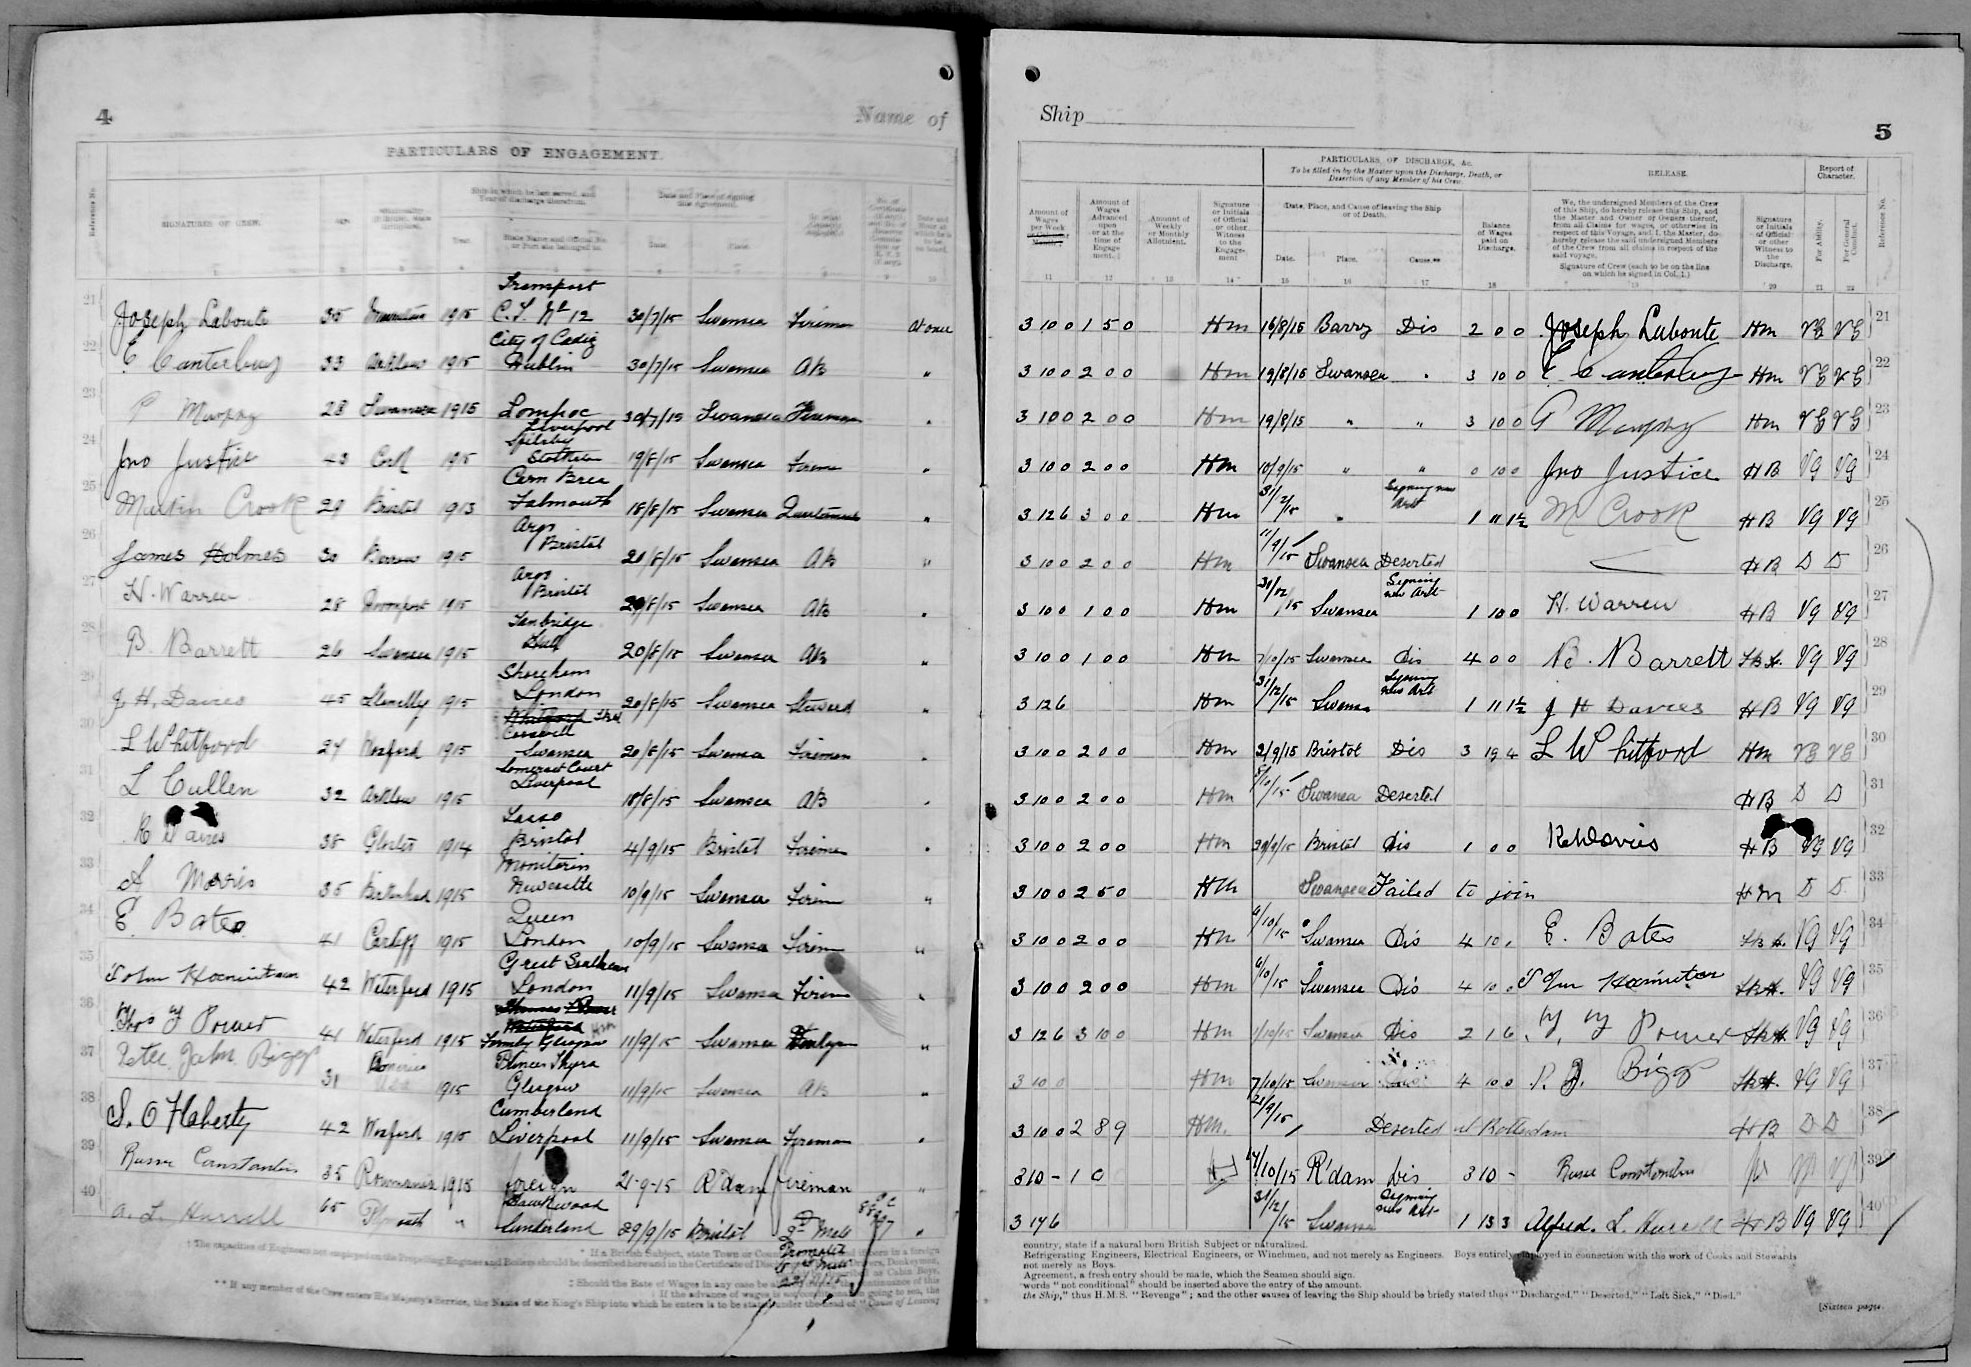 4
Name of
PARTICULARS OF ENGAGEMENT.
Reference No.
SIGNATURES OF CREW.
Ship in which he last served, and Year of discharge therefrom.
Year.
State Name and Official No. or Port she belonged to.
Date and Place of signing this Agreement.
Date. Place.
21 Joseph Labonte 35 1915 Transport C.T. No 12 30/7/15 Swansea Fireman At once
22 E Canterbury 33 Arklow 1915 City of Cadiz Dublin 30/7/15 Swansea AB "
23 P Murphy 28 Swansea 1915 Lompoc Liverpool 30/7/15 Swansea Fireman "
24 Jno Justice 43 Cork 1915 Spilsby 19/8/15 Swansea Firem "
25 Martin Crook 29 Bristol 1913 Carn Brea Falmouth 18/8/15 Swansea "
26 James Holmes 30 Barrow 1915 Argo Bristol 20/8/15 Swansea AB "
27 H. Warren 28 Devonport 1915 Argo Bristol 20/8/15 Swansea AB "
28 B. Barrett 26 Swansea 1915 Tambridge Hull 20/8/15 Swansea AB "
29 J H. Davies 45 Llanelly 1915 Shoreham London 20/8/15 Swansea Steward "
30 L Whitford 27 Wexford 1915 Swansea 20/8/15 Swansea Fireman "
31 L Cullen 32 Arklow 1915 Somerset Court Liverpool 18/8/15 Swansea AB "
32 R Davies 38 Gloster 1914 Lasso Bristol 4/9/15 Bristol Firem "
33 A Morris 35 Birkenhead 1915 Monitoria Newcastle 10/9/15 Swansea Firem "
34 E. Bates 41 Cardiff 1915 Queen London 10/9/15 Swansea Firem "
35 John 42 Waterford 1915 Great Southern London 11/9/15 Swansea Firem "
36 Thos J Power 41 Waterford 1915 Formby Glasgow 11/9/15 Swansea "
37 Peter John Biggs 31 America USA 1915 Princess Thyra Glasgow 11/9/15 Swansea AB "
38 S. O Flaherty 42 Wexford 1915 Cumberland Liverpool 11/9/15 Swansea Fireman "
39 Constantin 35 Roumania 1915 foreign 21-9-15 R'dam fireman "
40 A. L. Hurrell 65 Plymouth " Hawkwood Sunderland 29/9/15 Bristol 2d Mate "
Promoted
* If a British Subject, state Town or
‡ Should the Rate of Wages in any case be
** If any member of the Crew enters His Majesty's Service, the Name of the King's Ship into which he enters is to be stated under the head of "Cause of Leaving
Ship
5
PARTICULARS OF DISCHARGE, &c.
To be filled in by the Master upon the Discharge, Death, or Desertion of any Member of his Crew.
RELEASE.
Report of Character.
Amount of Wages per Week
Amount of Wages Advanced upon or at the time of Engagement.‡
Amount of Weekly or Monthly Allotment.
Signature or Initials of Official or other Witness to the Engagement
Date, Place, and Cause of leaving the Ship or of Death.
Date. Place. Cause.**
Balance of Wages paid on Discharge.
We, the undersigned Members of the Crew of this Ship, do hereby release this Ship, and the Master and Owner or Owners thereof, from all Claims for wages, or otherwise in respect of this Voyage, and I, the Master, do hereby release the said undersigned Members of the Crew from all claims in respect of the said voyage.
Signature of Crew (each to be on the line on which he signed in Col. 1.)
Signature or Initials of Official or other Witness to the Discharge.
For Ability.
For General Conduct.
Reference No.
11 12 13 14 15 16 17 18 19 20 21 22
3 10 0 1 5 0 Hm 16/8/15 Barry Dis 2 0 0 Joseph Labonte Hm VG VG 21
3 10 0 2 0 0 Hm 19/8/15 Swansea " 3 10 0 E Canterbury Hm VG VG 22
3 10 0 2 0 0 Hm 19/8/15 " " 3 10 0 P Murphy Hm VG VG 23
3 10 0 2 0 0 Hm 10/9/15 " " 0 10 0 Jno Justice HB VG VG 24
3 12 6 3 0 0 Hm 31/12/15 " Signing new Art 1 11 1½ M Crook HB VG VG 25
3 10 0 2 0 0 Hm 11/9/15 Swansea Deserted HB D D 26
3 10 0 1 0 0 Hm 31/12/15 Swansea Signing new Art 1 10 0 H. Warren HB VG VG 27
3 10 0 1 0 0 Hm 7/10/15 Swansea Dis 4 0 0 B. Barrett VG VG 28
3 12 6 Hm 31/12/15 Swansea Signing new Art 1 11 1½ J H Davies HB VG VG 29
3 10 0 2 0 0 Hm 2/9/15 Bristol Dis 3 19 4 L Whitford Hm VG VG 30
3 10 0 2 0 0 Hm 8/10/15 Swansea Deserted HB D D 31
3 10 0 2 0 0 Hm 29/9/15 Bristol Dis 1 0 0 R Davies HB VG VG 32
3 10 0 2 5 0 Hm Swansea Failed to join Hm D D 33
3 10 0 2 0 0 Hm 6/10/15 Swansea Dis 4 10 . E. Bates VG VG 34
3 10 0 2 0 0 Hm 6/10/15 Swansea Dis 4 10 0 John VG VG 35
3 12 6 3 10 0 Hm 1/10/15 Swansea Dis 2 1 6 T. J Power VG VG 36
3 10 0 Hm 7/10/15 Swansea 4 10 0 P. J. Biggs VG VG 37
3 10 0 2 8 9 Hm. 21/9/15 Deserted at Rotterdam HB D D 38
3 10 - 1 0 14/10/15 R'dam Dis 3 10 - Constantin 39
3 17 6 31/12/15 Swansea Signing new Art 1 13 3 Alfred. L. Hurrell HB VG VG 40
country, state if a natural born British Subject or naturalized.
Refrigerating Engineers, Electrical Engineers, or Winchmen, and not merely as Engineers. Boys entirely employed in connection with the work of Cooks and Stewards
not merely as Boys.
Agreement, a fresh entry should be made, which the Seamen should sign.
words "not conditional" should be inserted above the entry of the amount.
the Ship," thus H.M.S. "Revenge"; and the other causes of leaving the Ship should be briefly stated thus "Discharged," "Deserted," "Left Sick," "Died."
[Sixteen pages.